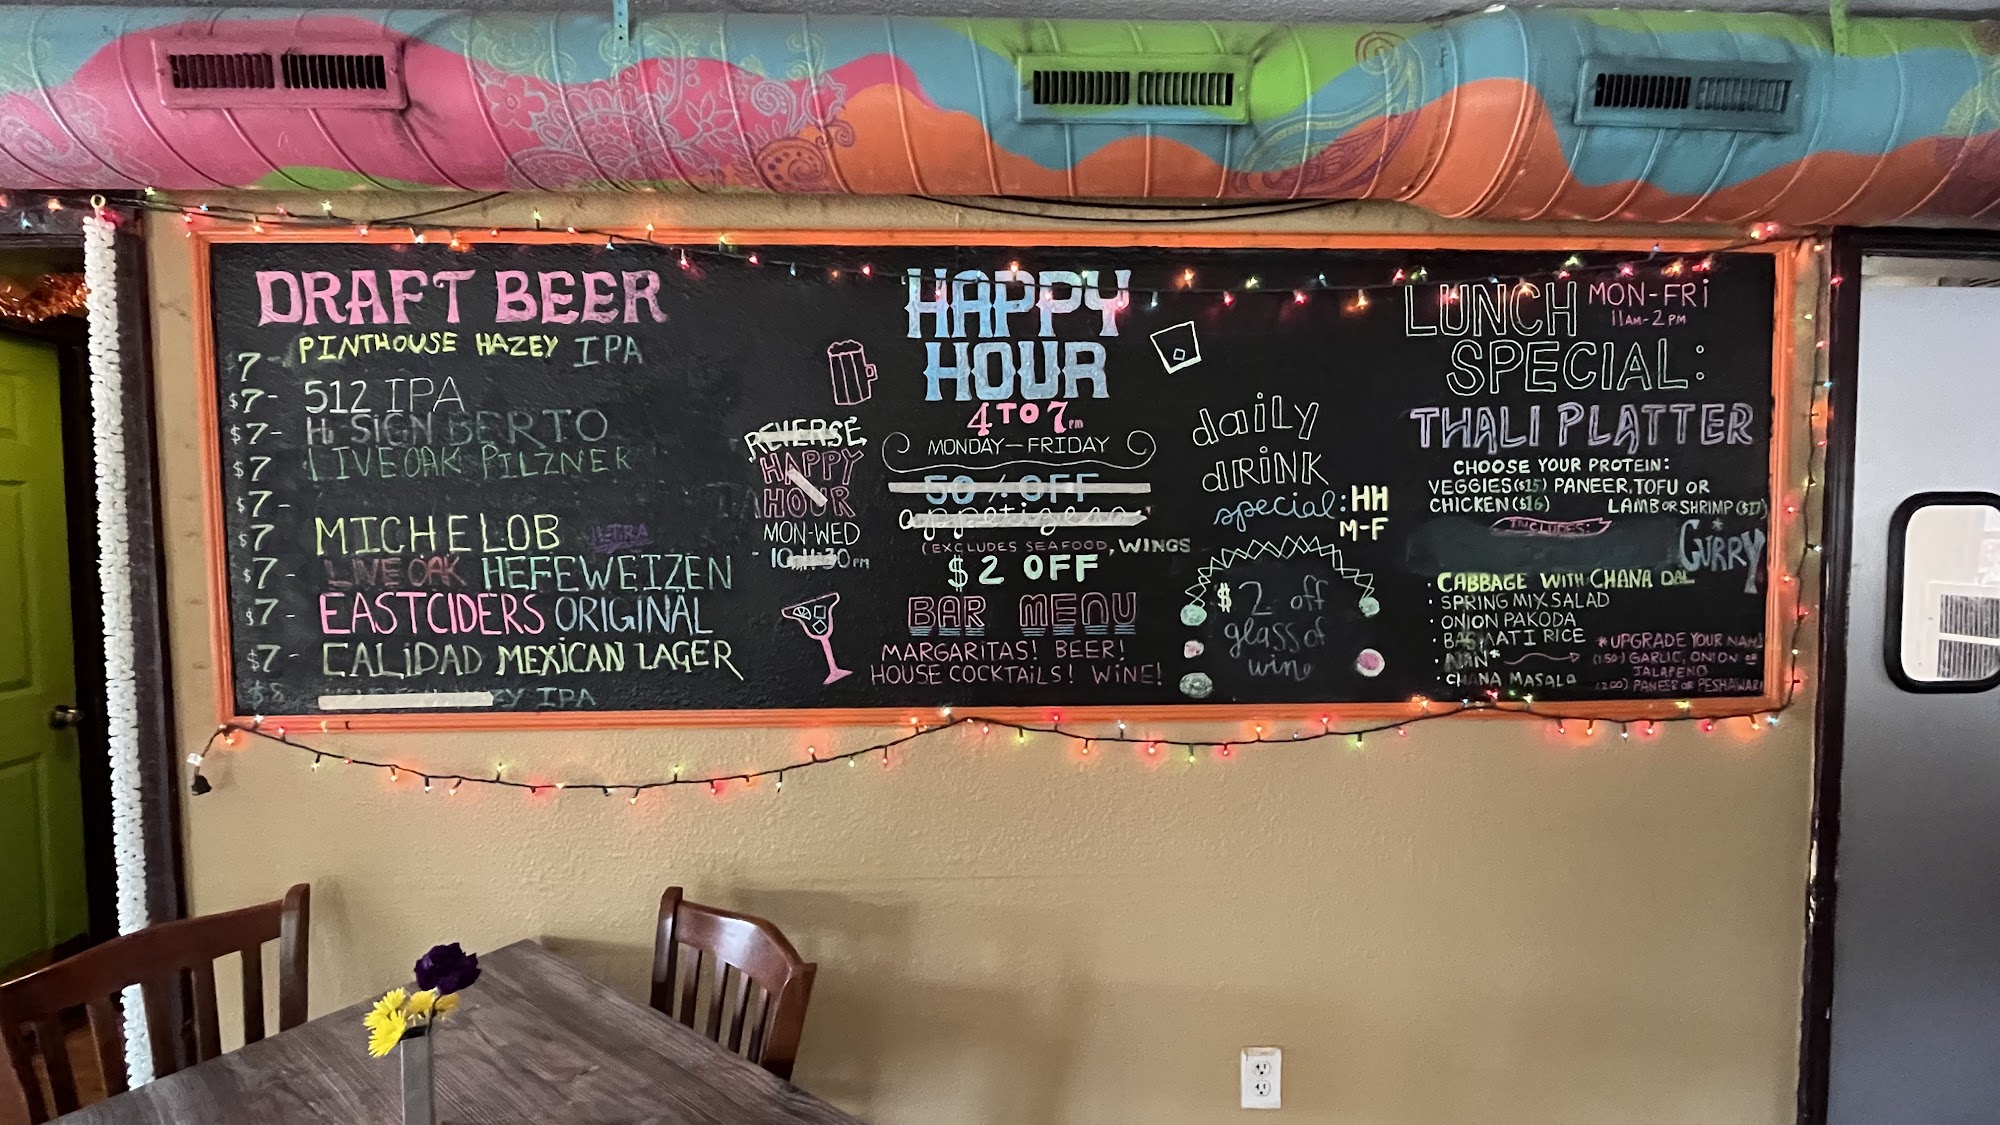 DRAFT BEER
$7- PINTHOUSE HAZEY IPA
$7- 512 IPA
$7- Hi SIGN BERTO
$7 LIVE OAK PILZNER
$7-
$7 MICHELOB ULTRA
$7- LIVE OAK HEFEWEIZEN
$7- EASTCIDERS ORIGINAL
$7- CALiDAD MEXICAN LAGER
$8 IPA
REVERSE
HAPPY
HOUR
MON-WED
10-11:30 PM
HAPPY
HOUR
4 TO 7 PM
MONDAY-FRIDAY
50% OFF
appetizers
(EXCLUDES SEAFOOD, WINGS
$2 OFF
BAR MENU
MARGARITAS! BEER!
HOUSE COCKTAiLS! WiNE!
daiLy
dRiNK
special: HH
M-F
$2 off
glass of
wine
LUNCH MON-FRi
11AM-2PM
SPECIAL:
THALI PLATTER
CHOOSE YOUR PROTEIN:
VEGGIES ($15) PANEER, TOFU OR
CHICKEN ($16) LAMB OR SHRIMP ($17)
INCLUDES:
* CURRY
· CABBAGE WITH CHANA DAL
· SPRING MIX SALAD
· ONION PAKODA
· BASMATI RICE
· NAN*
· CHANA MASALA
*UPGRADE YOUR NAN!
(1.50) GARLIC, ONION OR
JALAPENO
(2.00) PANEER OR PESHAWARI